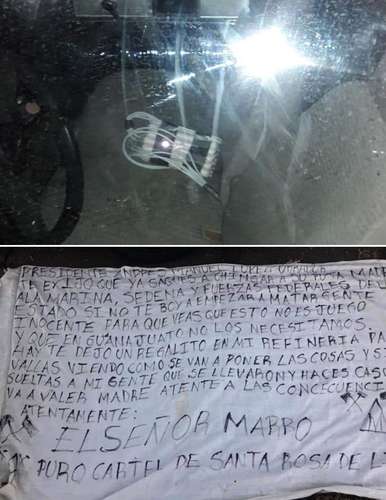 PRESIDENTE ANDRES MANUEL LOPEZ OBRADOR
QUE YA SAQUES A CHINGAR A SU PUTA MADRE
ALA MARINA, SEDENA Y FUERZAS FEDERALES DEL
ESTADO SI NO TE BOY A EMPEZAR A MATAR GENTE
INOCENTE PARA QUE VEAS QUE ESTO NO ES JUEGO
Y QUE EN GUANAJUATO NO LOS NECESITAMOS.
HAY TE DEJO UN REGALITO EN MI REFINERIA PA
VALLAS VIENDO COMO SE VAN A PONER LAS COSAS Y S
SUELTAS A MI GENTE QUE SE LLEVARON Y HACES CASO
VA A VALER MADRE ATENTE A LAS CONCECUENCI
ATENTAMENTE:
EL SEÑOR MARRO
PURO CARTEL DE SANTA ROSA DE LI